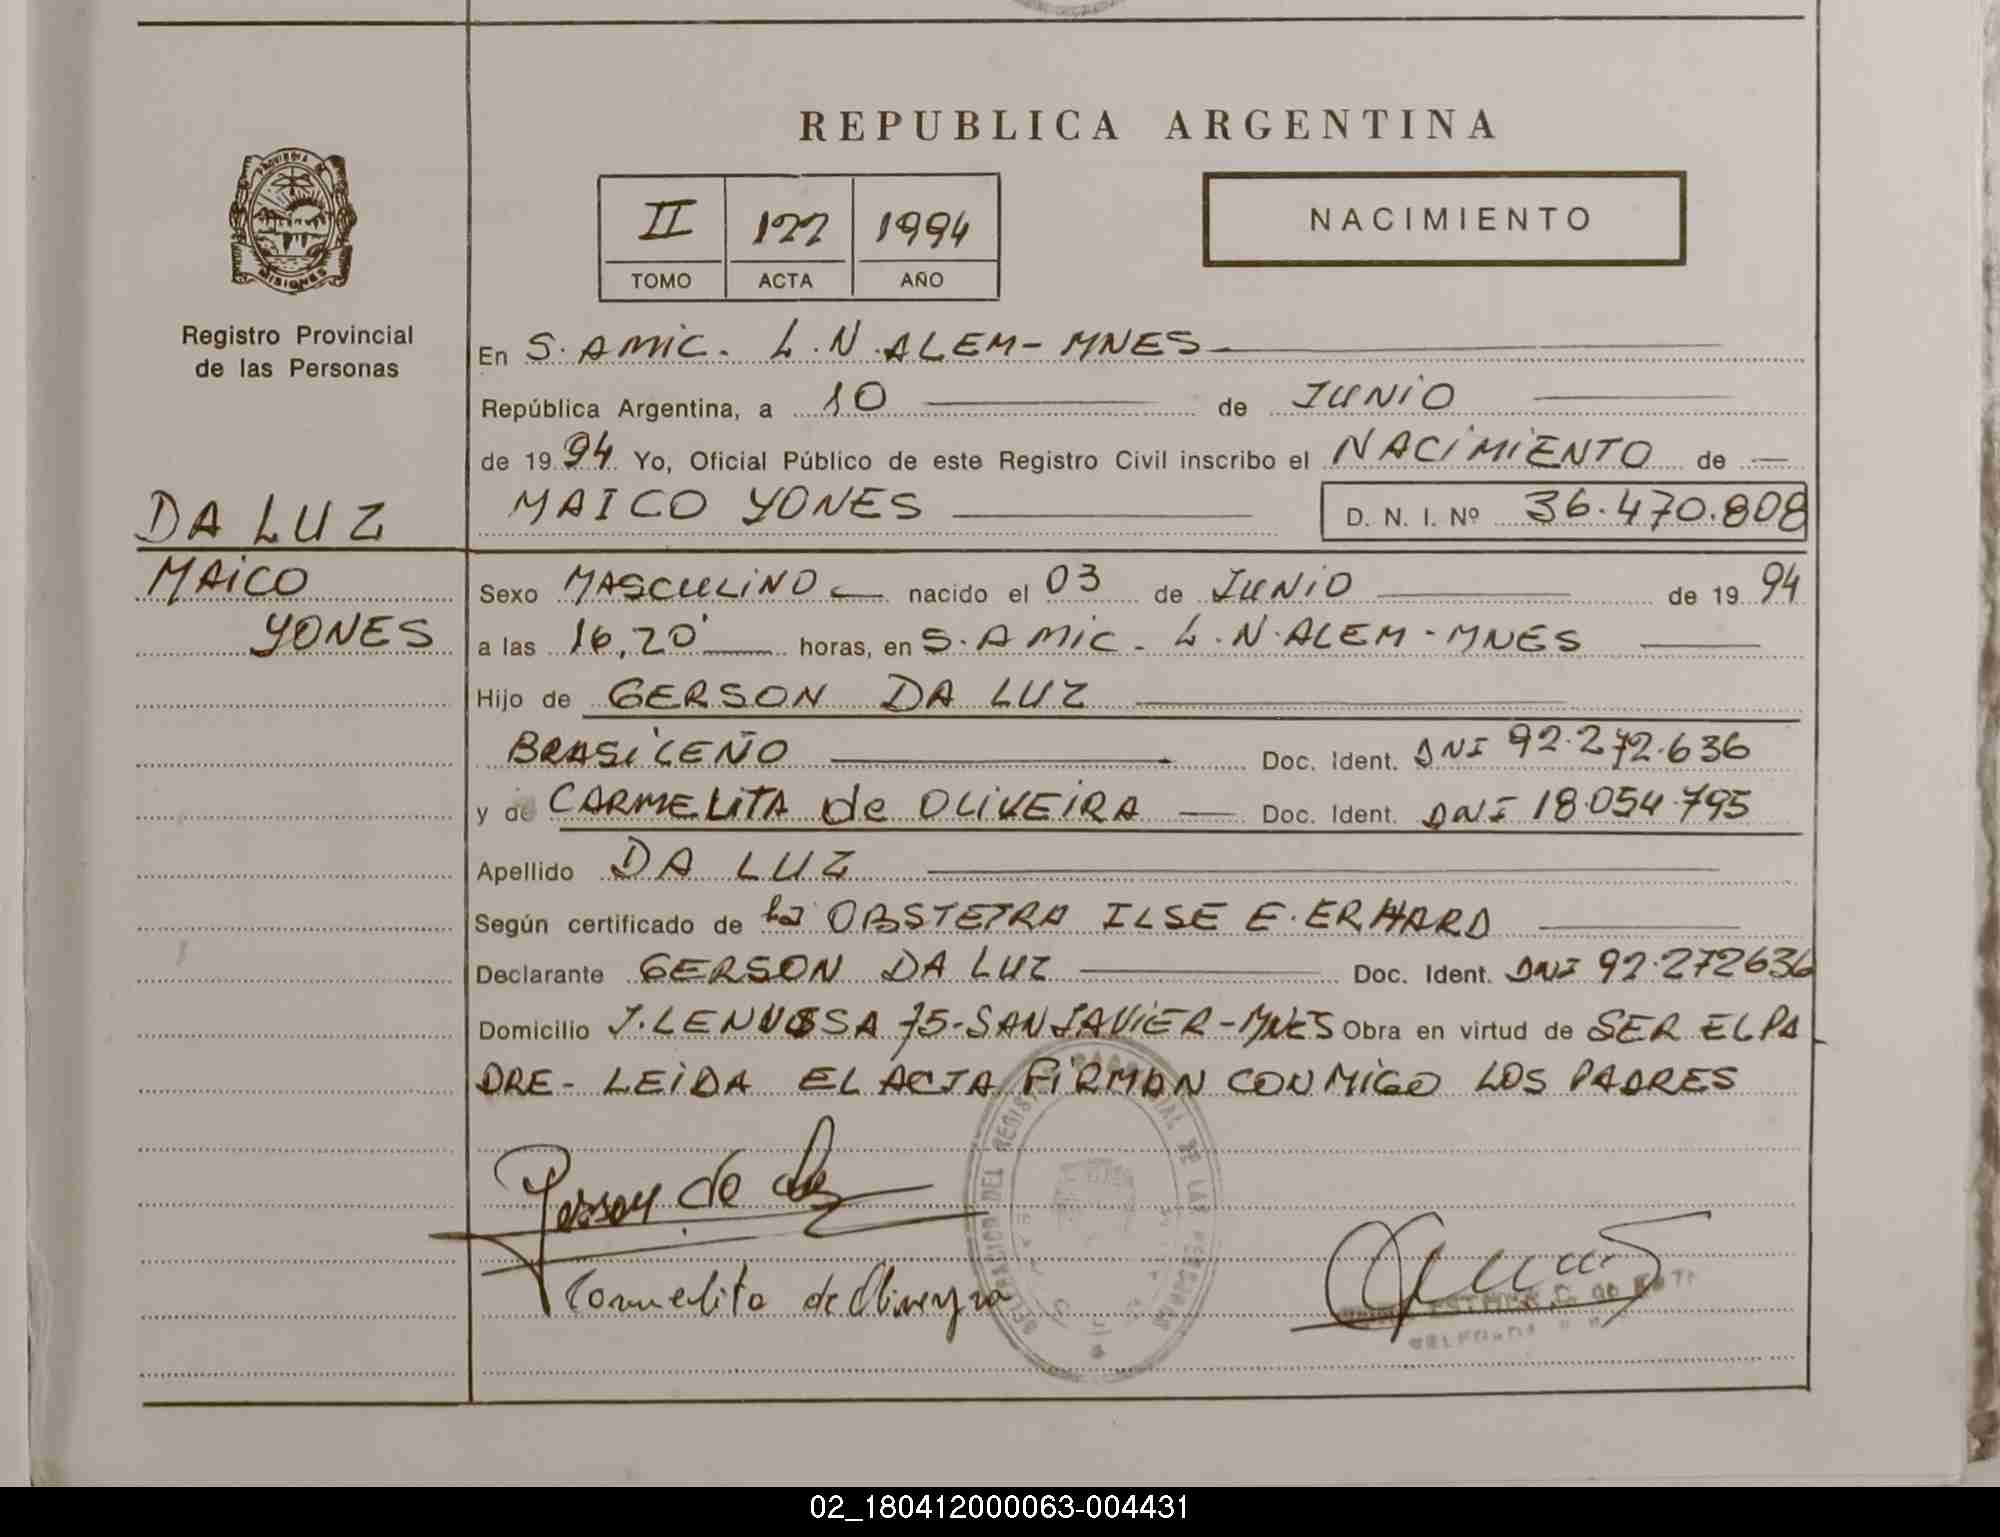 REPUBLICA ARGENTINA
PROVINCIA DE
MISIONES
Registro Provincial
de las Personas
II 122 1994
TOMO ACTA AÑO
NACIMIENTO
En S. AMIC. L.N. ALEM - MNES
República Argentina, a 10 de JUNIO
de 1994 Yo, Oficial Público de este Registro Civil inscribo el NACIMIENTO de
MAICO YONES D. N. I. Nº 36.470.808
DA LUZ
MAICO
YONES
Sexo MASCULINO nacido el 03 de JUNIO de 1994
a las 16,20' horas, en S. AMIC. L.N. ALEM - MNES
Hijo de GERSON DA LUZ
BRASILEÑO Doc. Ident. DNI 92.272.636
y de CARMELITA de OLIVEIRA Doc. Ident. DNI 18.054.795
Apellido DA LUZ
Según certificado de la OBSTETRA ILSE E. ERHARD
Declarante GERSON DA LUZ Doc. Ident. DNI 92.272636
Domicilio 75 - SAN JAVIER - MNES Obra en virtud de SER EL PA
DRE - LEIDA EL ACTA FIRMAN CONMIGO LOS PADRES
Gerson da Luz
Carmelita de Oliveyra
02_180412000063-004431